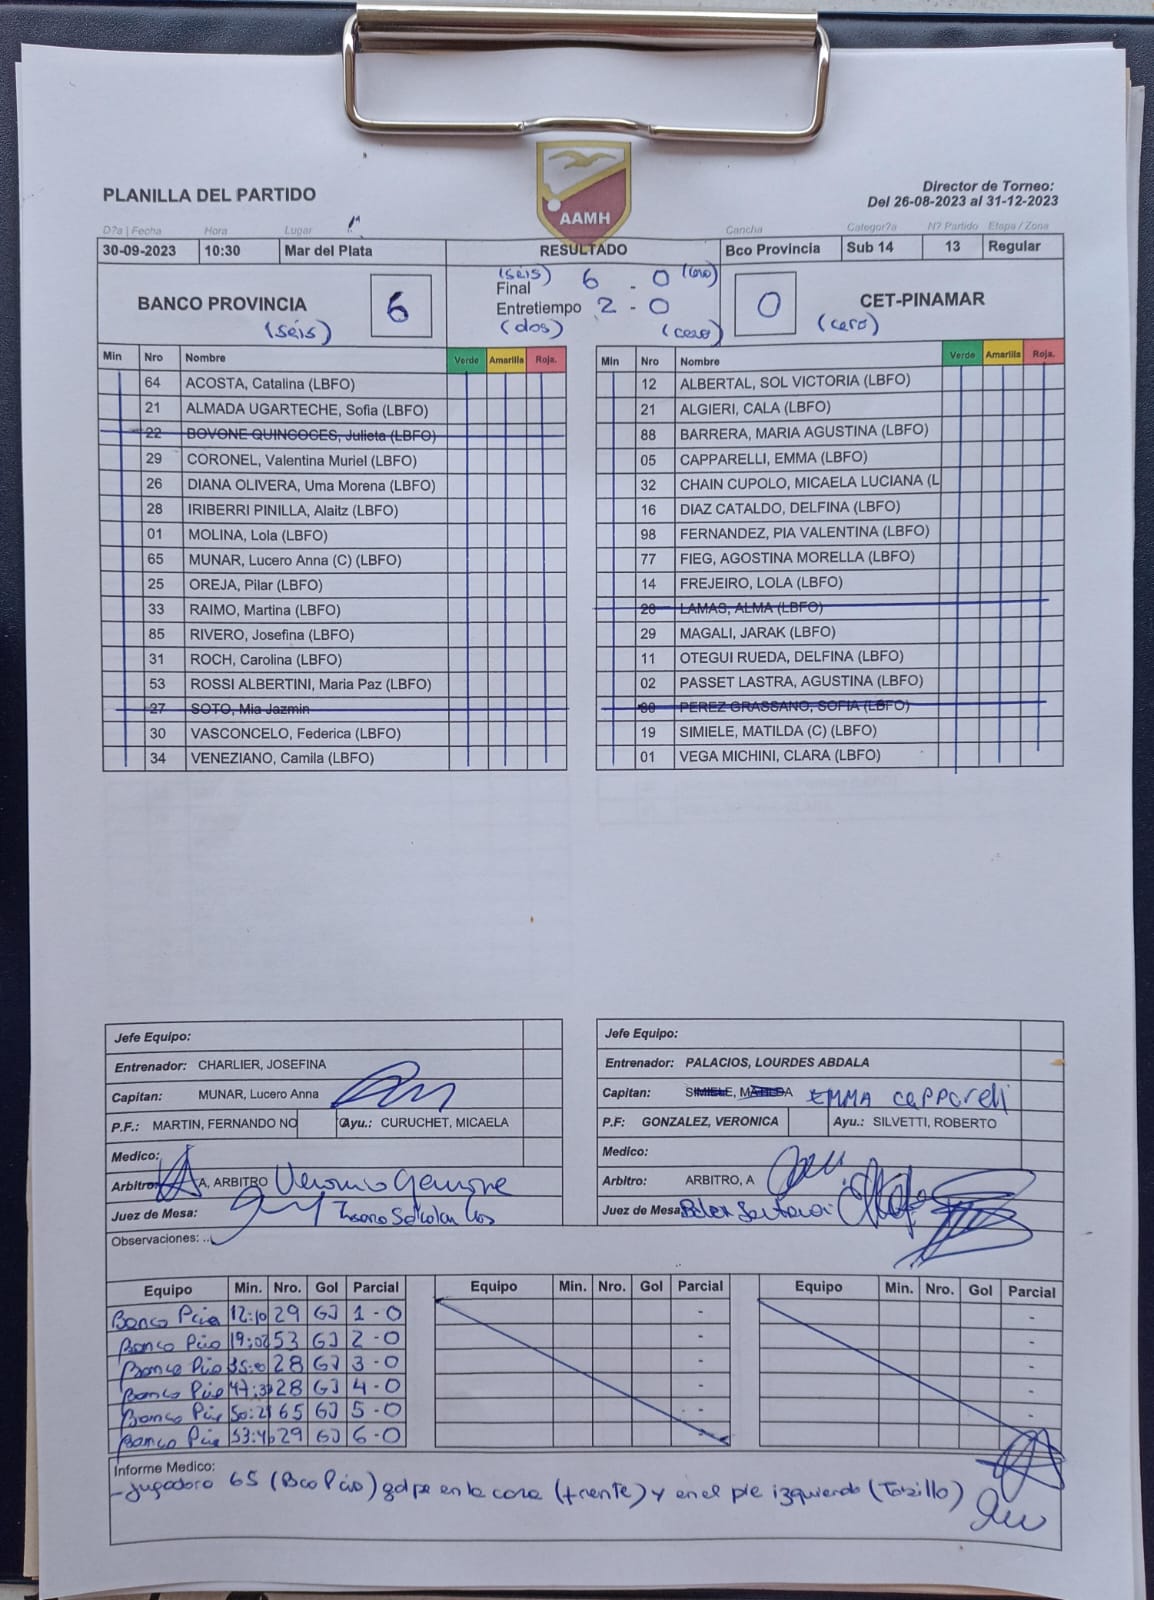 AAMH
PLANILLA DEL PARTIDO
Director de Torneo:
Del 26-08-2023 al 31-12-2023
D?a | Fecha Hora Lugar Cancha Categor?a N? Partido Etapa / Zona
30-09-2023 10:30 Mar del Plata RESULTADO Bco Provincia Sub 14 13 Regular
BANCO PROVINCIA 6 (séis)
(séis) 6 - 0 (cero)
Final
Entretiempo 2 - 0
(dos) (cero)
0 CET-PINAMAR (cero)
Min Nro Nombre Verde Amarilla Roja.
64 ACOSTA, Catalina (LBFO)
21 ALMADA UGARTECHE, Sofia (LBFO)
22 BOVONE QUINCOCES, Julieta (LBFO)
29 CORONEL, Valentina Muriel (LBFO)
26 DIANA OLIVERA, Uma Morena (LBFO)
28 IRIBERRI PINILLA, Alaitz (LBFO)
01 MOLINA, Lola (LBFO)
65 MUNAR, Lucero Anna (C) (LBFO)
25 OREJA, Pilar (LBFO)
33 RAIMO, Martina (LBFO)
85 RIVERO, Josefina (LBFO)
31 ROCH, Carolina (LBFO)
53 ROSSI ALBERTINI, Maria Paz (LBFO)
27 SOTO, Mia Jazmin
30 VASCONCELO, Federica (LBFO)
34 VENEZIANO, Camila (LBFO)
Min Nro Nombre Verde Amarilla Roja.
12 ALBERTAL, SOL VICTORIA (LBFO)
21 ALGIERI, CALA (LBFO)
88 BARRERA, MARIA AGUSTINA (LBFO)
05 CAPPARELLI, EMMA (LBFO)
32 CHAIN CUPOLO, MICAELA LUCIANA (L
16 DIAZ CATALDO, DELFINA (LBFO)
98 FERNANDEZ, PIA VALENTINA (LBFO)
77 FIEG, AGOSTINA MORELLA (LBFO)
14 FREJEIRO, LOLA (LBFO)
LAMAS, ALMA (LBFO)
29 MAGALI, JARAK (LBFO)
11 OTEGUI RUEDA, DELFINA (LBFO)
02 PASSET LASTRA, AGUSTINA (LBFO)
PEREZ GRASSANO, SOFIA (LBFO)
19 SIMIELE, MATILDA (C) (LBFO)
01 VEGA MICHINI, CLARA (LBFO)
Jefe Equipo:
Entrenador: CHARLIER, JOSEFINA
Capitan: MUNAR, Lucero Anna
P.F.: MARTIN, FERNANDO NO Ayu.: CURUCHET, MICAELA
Medico:
Arbitro: A, ARBITRO
Juez de Mesa:
Jefe Equipo:
Entrenador: PALACIOS, LOURDES ABDALA
Capitan: SIMIELE, MATILDA EMMA Capporeli
P.F: GONZALEZ, VERONICA Ayu.: SILVETTI, ROBERTO
Medico:
Arbitro: ARBITRO, A
Juez de Mesa:
Observaciones: ..
Equipo Min. Nro. Gol Parcial
Banco Pcia 12:10 29 GJ 1-0
Banco Pcia 19:02 53 GJ 2-0
Banco Pcia 28 GJ 3-0
Banco Pcia 28 GJ 4-0
Banco Pcia 65 GJ 5-0
Banco Pcia 29 GJ 6-0
Equipo Min. Nro. Gol Parcial
-
-
-
-
-
-
Equipo Min. Nro. Gol Parcial
-
-
-
-
-
Informe Medico:
- Jugadora 65 (Bco Pcia) golpe en la cara (frente) y en el pie izquierdo (Tobillo)